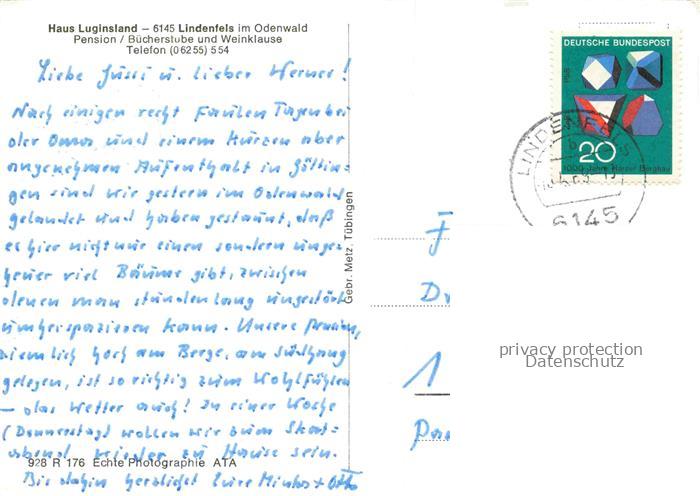 Haus Luginsland – 6145 Lindenfels im Odenwald
Pension / Bücherstube und Weinklause
Telefon (06255) 554
Liebe Jussi u. lieber Werner!
Nach einigen recht faulen Tagen bei
der Oma und einem kurzen aber
angenehmen Aufenthalt in Göttin-
gen sind wir gestern im Odenwald
gelandet und haben gestaunt, daß
es hier nicht nur einen sondern unge-
heuer viel Bäume gibt, zwischen
denen man stundenlang ungestört
umherspazieren kann. Unsere Pension,
ziemlich hoch am Berge, am Südhang
gelegen, ist so richtig zum Wohlfühlen
– das Wetter auch! In einer Woche
(Donnerstag) wollen wir zum Skat-
abend wieder zu Hause sein.
Bis dahin herzlichst Eure + Otto
928 R 176 Echte Photographie ATA
Gebr. Metz, Tübingen
DEUTSCHE BUNDESPOST
1968
20
1000 Jahre Harzer Bergbau
LINDENFELS
6145
F
1
privacy protection
Datenschutz